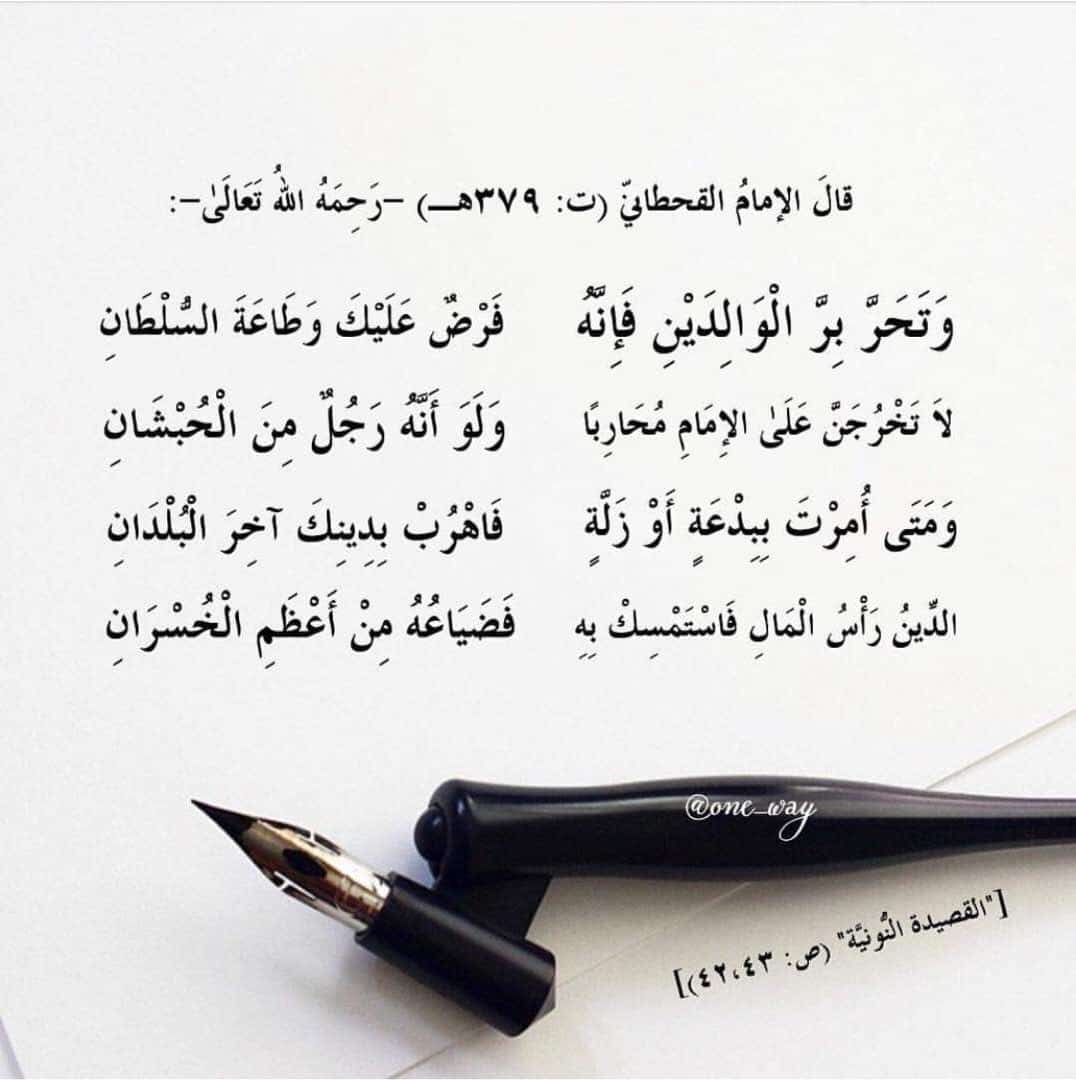 قالَ الإمامُ القحطانيّ (ت: ٣٧٩هـ) -رَحِمَهُ اللهُ تَعَالَىٰ-:
وَتَحَرَّ بِرَّ الْوَالِدَيْنِ فَإِنَّهُ فَرْضٌ عَلَيْكَ وَطَاعَةَ السُّلْطَانِ
لاَ تَخْرُجَنَّ عَلَىٰ الإِمَامِ مُحَارِبًا وَلَوَ أَنَّهُ رَجُلٌ مِنَ الْحُبْشَانِ
وَمَتَى أُمِرْتَ بِبِدْعَةٍ أَوْ زَلَّةٍ فَاهْرُبْ بِدِينِكَ آخِرَ الْبُلْدَانِ
الدِّينُ رَأْسُ الْمَالِ فَاسْتَمْسِكْ بِهِ فَضَيَاعُهُ مِنْ أَعْظَمِ الْخُسْرَانِ
@one_way
["القصيدة النُّونيَّة" (ص: ٤٢،٤٣)]